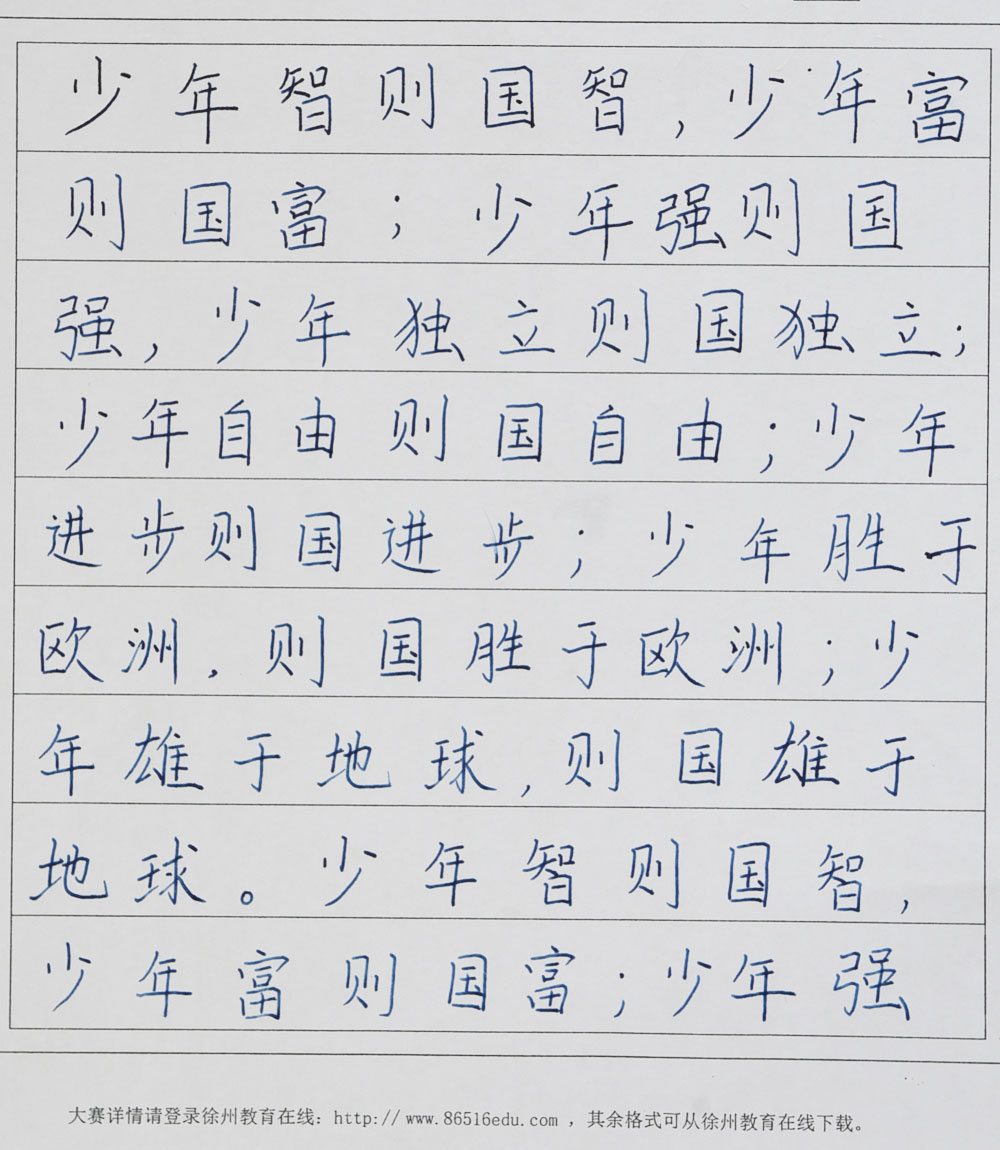 少年智则国智,少年富
则国富;少年强则国
强,少年独立则国独立;
少年自由则国自由;少年
进步则国进步;少年胜于
欧洲,则国胜于欧洲;少
年雄于地球,则国雄于
地球。少年智则国智,
少年富则国富;少年强
大赛详情请登录徐州教育在线:http://www.86516edu.com ,其余格式可从徐州教育在线下载。